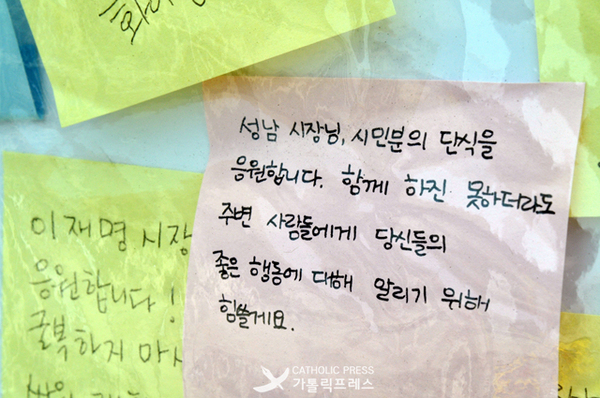 성남 시장님, 시민분의 단식을
응원합니다. 함께 하진 못하더라도
주변 사람들에게 당신들의
좋은 행동에 대해 알리기 위해
힘쓸게요.
이재명 시장
응원합니다!
굴복하지 마시
CATHOLIC PRESS
가톨릭프레스